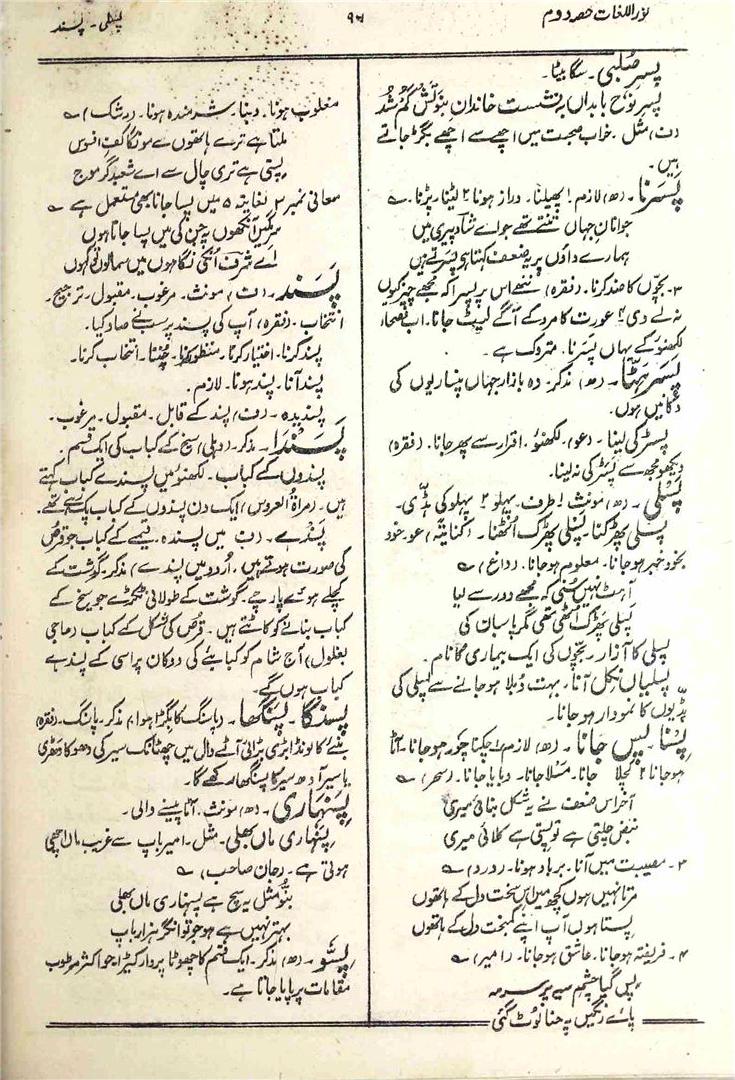 نور اللغات حصہ دوم
۹۶
پسلی۔ پسند
پسرِ صُلبی۔ سگا بیٹا۔
پسرِ نوح بابداں بہ نشست خاندانِ نبوتش گُم شُد
(ف) مثل۔ خراب صحبت میں اچھے سے اچھے بگڑ جاتے
ہیں۔
پَسَرنا۔ (ھ) لازم ۱ پھیلنا۔ دراز ہونا ۲ لیٹنا۔ پڑنا۔ ؎
جوانانِ جہاں تنتے تھے جو اے شاد پیری میں
ہمارے داؤں پر یہ ضعف کہتا ہے پسرتے ہیں
۳۔ بچّوں کا ضد کرنا۔ (فقرہ) ننھے اس پر پسرا کہ مجھے چیز کیوں
نہ لے دی ۴ عورت کا مرد کے آگے لیٹ جانا۔ اب فصحاء
لکھنؤ کے یہاں پسَرنا۔ متروک ہے۔
پَسَر ہٹّا۔ (ھ) مذکر۔ وہ بازار جہاں پنساریوں کی
دُکانیں ہوں۔
پسڑ کی لینا۔ (عو) لکھنؤ۔ اقرار سے پھر جانا۔ (فقرہ)
دیکھو مجھ سے پَسڑ کی نہ لینا۔
پَسلی۔ (ھ) مونث ۱ طرف۔ پہلو ۲ پہلو کی ہڈّی۔
پسلی پھڑکنا۔ پسلی پھڑک اُٹھنا۔ (کنایتہً) عو۔ خود
بخود خبر ہو جانا۔ معلوم ہو جانا۔ (داغ) ؎
آہٹ نہیں سُنی کہ مجھے دور سے لیا
پسلی پھڑک اُٹھی تھی مگر پاسبان کی
پسلی کا آزار۔ بچّوں کی ایک بیماری کا نام۔
پسلیاں نکل آنا۔ بہت دُبلا ہو جانے سے پسلی کی
ہڈّیوں کا نمودار ہو جانا۔
پِسنا۔ پِس جانا۔ (ھ) لازم ۱ چکنا چور ہو جانا۔ آٹا
ہو جانا ۲ کُچلا جانا۔ مَسلا جانا۔ دبایا جانا۔ (سحر) ؎
آخر اس ضعف نے یہ شکل بنائی میری
نبض چلتی ہے تو پستی ہے کلائی میری
۳۔ مصیبت میں آنا۔ برباد ہونا۔ (درد) ؎
مرتا نہیں ہوں کچھ میں اس سخت دل کے ہاتھوں
پستا ہوں آپ اپنے کمبخت دل کے ہاتھوں
۴۔ فریفتہ ہو جانا۔ عاشق ہو جانا۔ (امیر) ؎
پس گیا چشمِ سیہ پر سرمہ
پائے رنگیں پہ حنا لوٹ گئی
مغلوب ہونا۔ دبنا۔ شرمندہ ہونا۔ (رشک) ؎
ملتا ہے ترے ہاتھوں سے مونگا کفِ افسوس
پستی ہے تری چال سے اے شعبدہ گر موج
معانی نمبر ۲ لغایتہ ۵ میں پسا جانا بھی مستعمل ہے ؎
سرمگیں آنکھوں پر جن کی میں پسا جاتا ہوں
اے شرف اُنکی نگاہوں میں سماؤں کیونکر
پَسَند۔ (ف) مونث۔ مرغوب۔ مقبول۔ ترجیح۔
انتخاب۔ (فقرہ) آپ کی پسند پر سب نے صاد کیا۔
پسند کرنا۔ اختیار کرنا۔ منظور کرنا۔ چُننا۔ انتخاب کرنا۔
پسند آنا۔ پسند ہونا۔ لازم۔
پسندیدہ۔ (ف) پسند کے قابل۔ مقبول۔ مرغوب۔
پَسَندا۔ مذکر۔ (دہلی) سیخ کے کباب کی ایک قسم۔
پسندوں کے کباب۔ لکھنؤ میں پسندے کباب کہتے
ہیں۔ (مراۃ العروس) ایک دن پسندوں کے کباب پک رہے تھے۔
پَسَندے۔ (ف میں پسندہ۔ قیمے کے کباب جو قرص
کی صورت ہوتے ہیں۔ اُردو میں پسندے) مذکر۔ گوشت کے
کچلے ہوئے پارچے۔ گوشت کے طولانی ٹکڑے جو سیخ کے
کباب بنانے کو کاٹتے ہیں۔ قرص کی شکل کے کباب (حاجی
بغلول) آج شام کو کبابئے کی دوکان پر اسی کے پسندے
کباب ہوں گے۔
پسنگا۔ پَسَنگھا۔ (پاسنگ کا بگڑا ہوا) مذکر۔ پاسنگ۔ (فقرہ)
بنئے کا لونڈا بڑی بڑائی آٹے دال میں چھٹانک سیر کی دھوکا دھڑی
یا سیر آدھ سیر کا پسنگھا رکھے گا۔
پِسَنہاری۔ (ھ) مونث۔ آٹا پیسنے والی۔
پِسَنہاری ماں بھلی۔ مثل۔ امیر باپ سے غریب ماں اچھی
ہوتی ہے۔ (جان صاحب) ؎
بنّو مثل یہ سچ ہے پسنہاری ماں بھلی
بہتر نہیں ہے ہو جو تو انگر ہزار باپ
پِسّو۔ (ھ) مذکر۔ ایک قسم کا چھوٹا پردار کیڑا جو اکثر مرطوب
مقامات پر پایا جاتا ہے۔